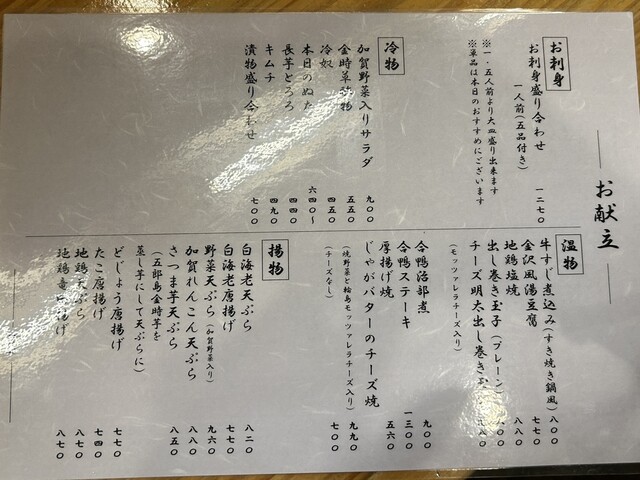 お献立
お刺身
お刺身盛り合わせ
一人前(五品付き) 一二七〇
※一・五人前より大皿盛り出来ます
※単品は本日のおすすめにございます
冷物
加賀野菜入りサラダ 九〇〇
金時草酢物 五五〇
冷奴 四五〇
本日のぬた 六四〇〜
長芋とろろ 四四〇
キムチ 四九〇
漬物盛り合わせ 七〇〇
温物
牛すじ煮込み(すき焼き鍋風) 八〇〇
金沢風湯豆腐 七七〇
地鶏塩焼 八八〇
出し巻き玉子(プレーン)
チーズ明太出し巻き
(モッツァレラチーズ入り)
合鴨治部煮 九〇〇
合鴨ステーキ 一三〇〇
厚揚げ焼 五六〇
じゃがバターのチーズ焼 九九〇
(焼野菜と輪島モッツァレラチーズ入り)
(チーズなし) 七〇〇
揚物
白海老天ぷら 八二〇
白海老唐揚げ 七七〇
野菜天ぷら(加賀野菜入り) 九六〇
加賀れんこん天ぷら 八八〇
さつま芋天ぷら 八五〇
(五郎島金時芋を
蒸し芋にして天ぷらに)
どじょう唐揚げ 七七〇
たこ唐揚げ 七四〇
地鶏天ぷら 八七〇
地鶏竜田揚げ 八七〇